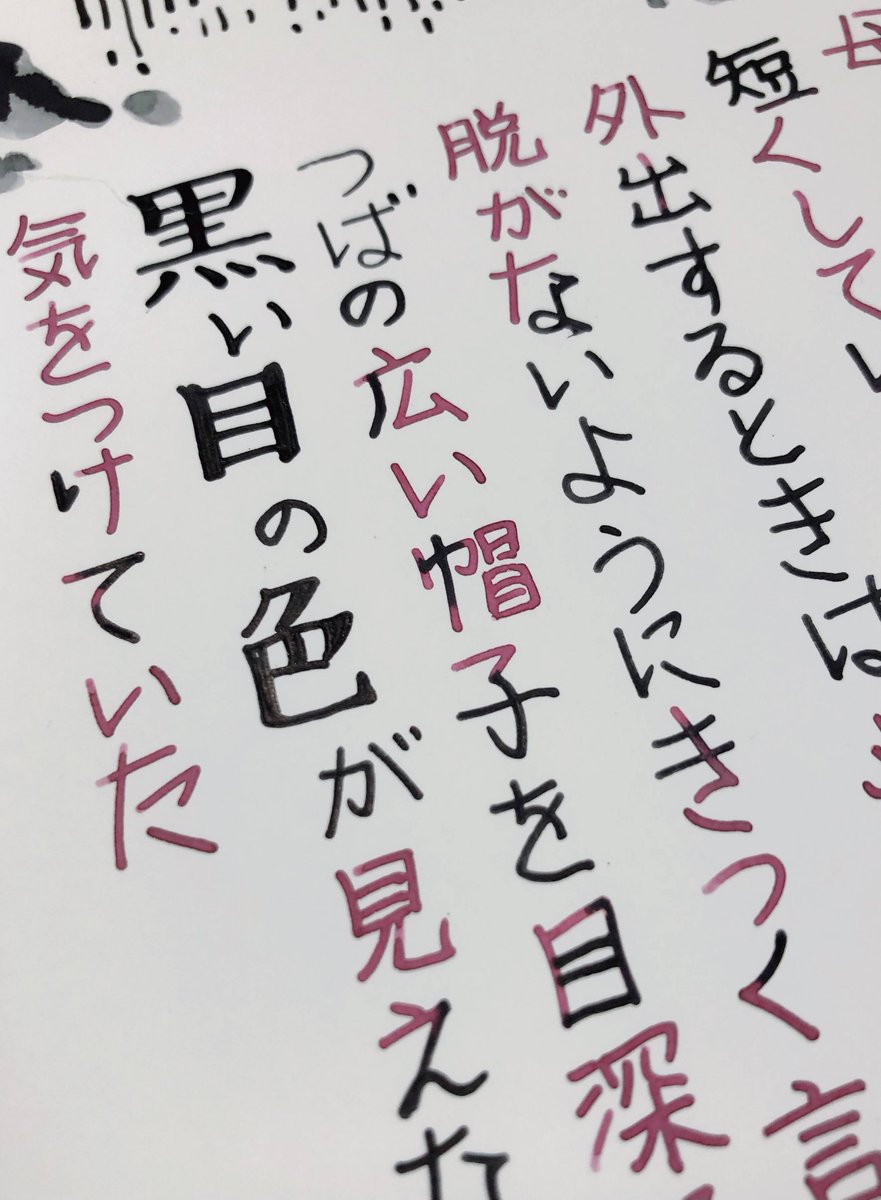 母
短くしてい
外出するときは
脱がないようにきつく言
つばの広い帽子を目深
黒い目の色が見えた
気をつけていた